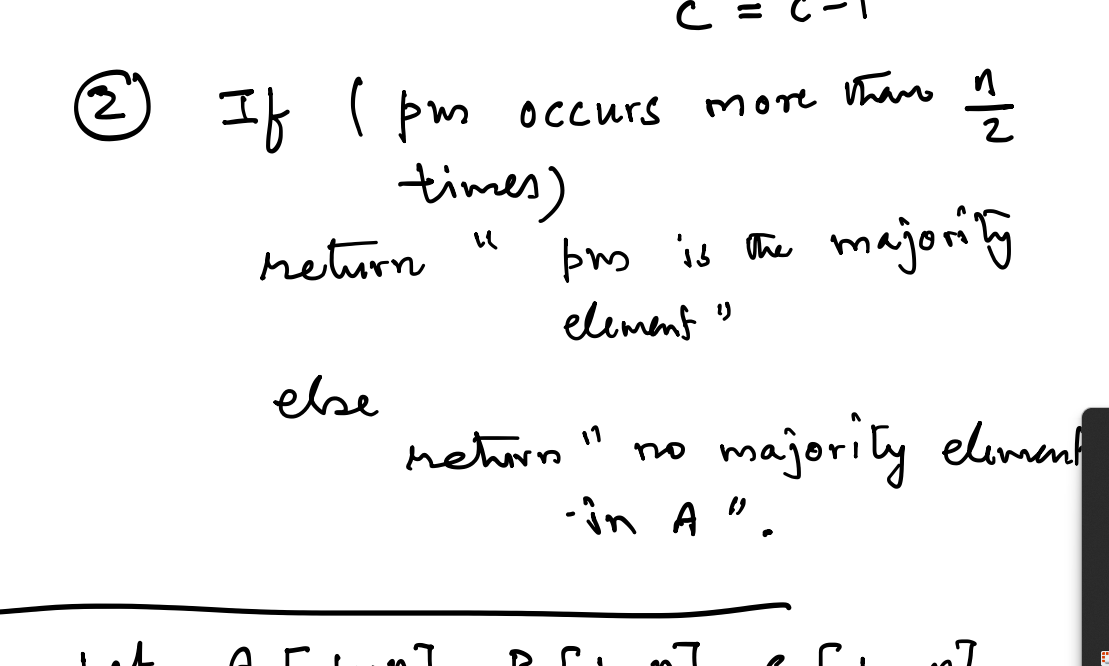 c = c-1
② If ( pm occurs more than n/2
times)
return " pm is the majority
element"
else
return " no majority element
in A ".
Let A[1..n] B[1..n] C[1..n]